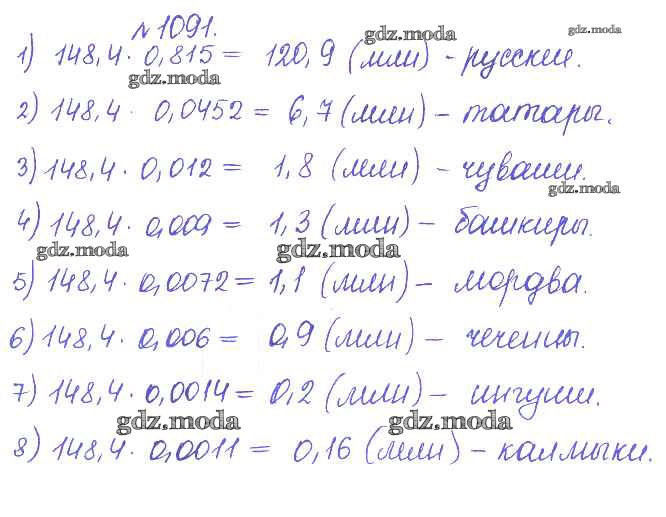 №1091.
gdz.moda
gdz.moda
1) 148,4 · 0,815 = 120,9 (млн) - русские.
gdz.moda
2) 148,4 · 0,0452 = 6,7 (млн) - татары.
3) 148,4 · 0,012 = 1,8 (млн) - чуваши.
gdz.moda
4) 148,4 · 0,009 = 1,3 (млн) - башкиры.
gdz.moda
gdz.moda
5) 148,4 · 0,0072 = 1,1 (млн) - мордва.
6) 148,4 · 0,006 = 0,9 (млн) - чеченцы.
7) 148,4 · 0,0014 = 0,2 (млн) - ингуши.
gdz.moda
gdz.moda
8) 148,4 · 0,0011 = 0,16 (млн) - калмыки.